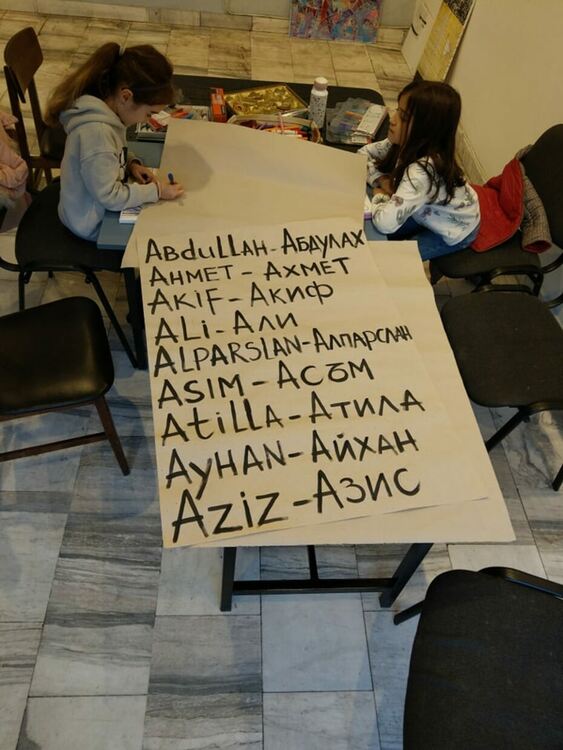 Abdullah - Абдулах
Ahmet - Ахмет
Akif - Акиф
Ali - Али
Alparslan - Алпарслан
Asim - Асъм
Atilla - Атила
Ayhan - Айхан
Aziz - Азис